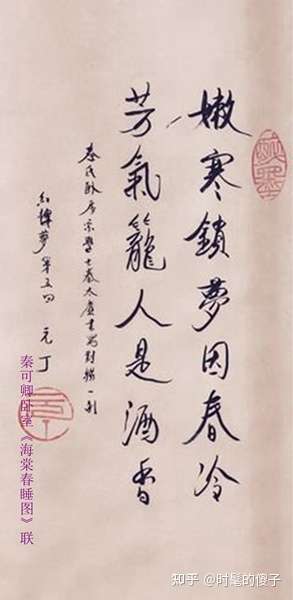 嫩寒鎖夢因春冷
芳氣籠人是酒香
秦氏卧房宋學士秦太虛書寫對聯一副
紅樓夢第五回 元丁
秦可卿卧室《海棠春睡图》联
知乎 @时髦的傻子